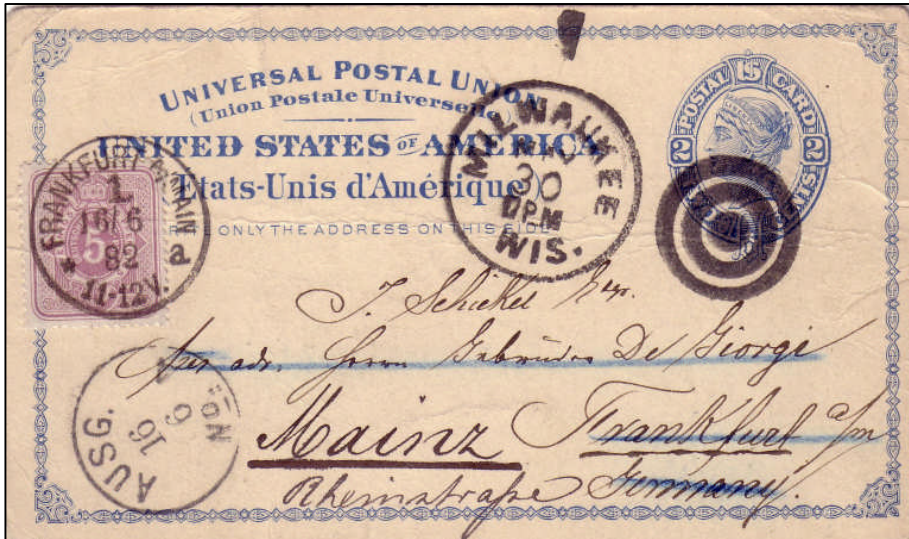 UNIVERSAL POSTAL UNION
(Union Postale Universelle)
UNITED STATES OF AMERICA
(Etats-Unis d'Amérique)
WRITE ONLY THE ADDRESS ON THIS SIDE
POSTAL CARD
U S
2 2
CENTS
MILWAUKEE
30
PM
WIS.
FRANKFURT A. MAIN
1.
16/6
82
11-12V.
5
J. Schickel
per adr. Herrn Gebrüder De Giorgi
Mainz Frankfurt a/m
Rheinstraße Germany.
AUSG.
16
6
No.